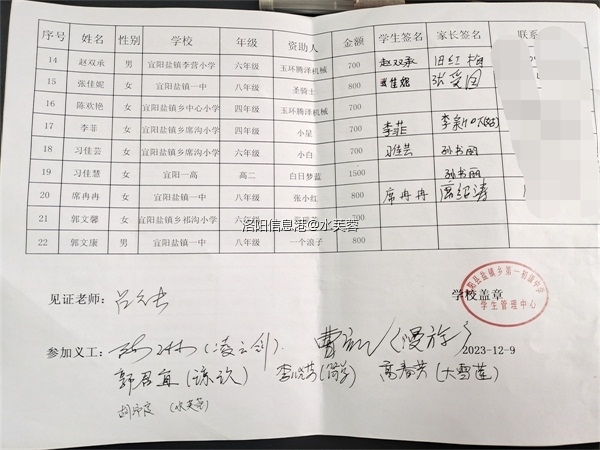 序号 姓名 性别 学校 年级 资助人 金额 学生签名 家长签名 联系
14 赵双承 男 宜阳盐镇李营小学 六年级 玉环腾泽机械 700 赵双承
15 张佳妮 女 宜阳盐镇一中 八年级 圣骑士 800 张佳妮
16 陈欢艳 女 宜阳盐镇乡中心小学 四年级 玉环腾泽机械 700
17 李菲 女 宜阳盐镇乡席沟小学 四年级 小星 700 李菲
18 习佳芸 女 宜阳盐镇乡席沟小学 六年级 小白 700 习佳芸 孙书丽
19 习佳慧 女 宜阳一高 高二 白日梦蓝 1500 孙书丽
20 席冉冉 女 宜阳盐镇一中 八年级 张小红 800 席冉冉 席绍涛
21 郭文馨 女 宜阳盐镇乡祁沟小学 六年级 700
22 郭文康 男 宜阳盐镇一中 八年级 一个浪子 800
洛阳信息港@水芙蓉
见证老师：
学校盖章
宜阳县盐镇乡第一初级中学
学生管理中心
参加义工： (凌云剑) (漫游) 2023-12-9
高春芳(大雪莲)
(水芙蓉)